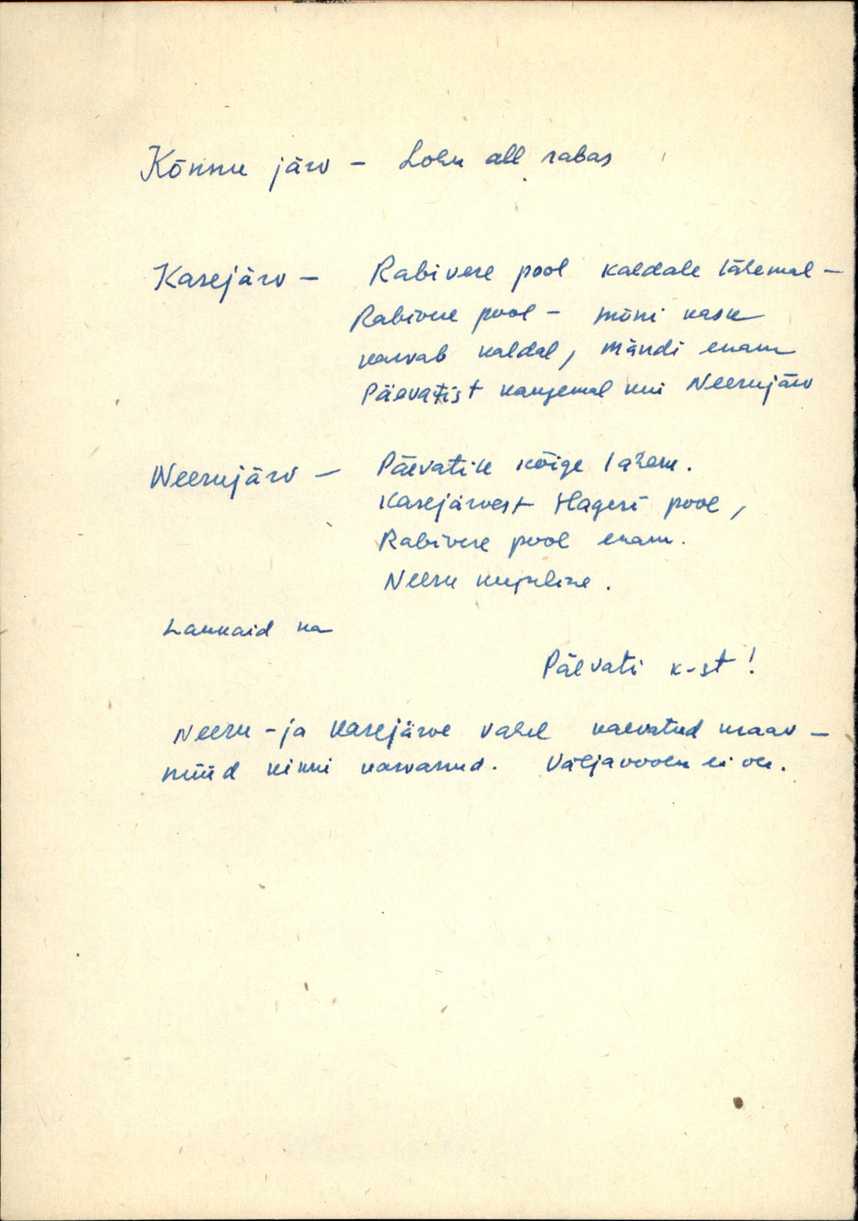 Kõnnu järv – Lohu all rabas
Kasejärv – Rabivere pool kaldale lähemal –
Rabivere pool – mõni kask
kasvab kaldal, mändi enam
Päevatist kaugemal kui Neerujärv
Neerujärv – Päevatile kõige lähem.
Kasejärvest Hageri pool,
Rabivere pool enam.
Neeru kujuline.
Laukaid ka
Päevati k-st!
Neeru- ja Kasejärve vahel kaevatud kraav –
nüüd kinni kasvanud. Väljavoolu ei ole.